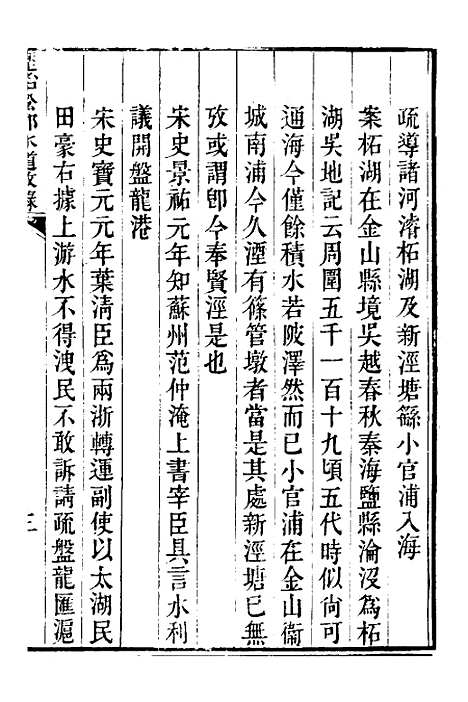 疏導諸河濬柘湖及新涇塘繇小官浦入海
案柘湖在金山縣境吳越春秋秦海鹽縣淪沒為柘
湖吳地記云周圍五千一百十九頃五代時似尙可
通海今僅餘積水若陂澤然而已小官浦在金山衞
城南浦今久湮有篠管墩者當是其處新涇塘已無
攷或謂卽今奉賢涇是也
宋史景祐元年知蘇州范仲淹上書宰臣具言水利
議開盤龍港
宋史寶元元年葉淸臣爲兩浙轉運副使以太湖民
田豪右據上游水不得洩民不敢訴請疏盤龍匯滬
三